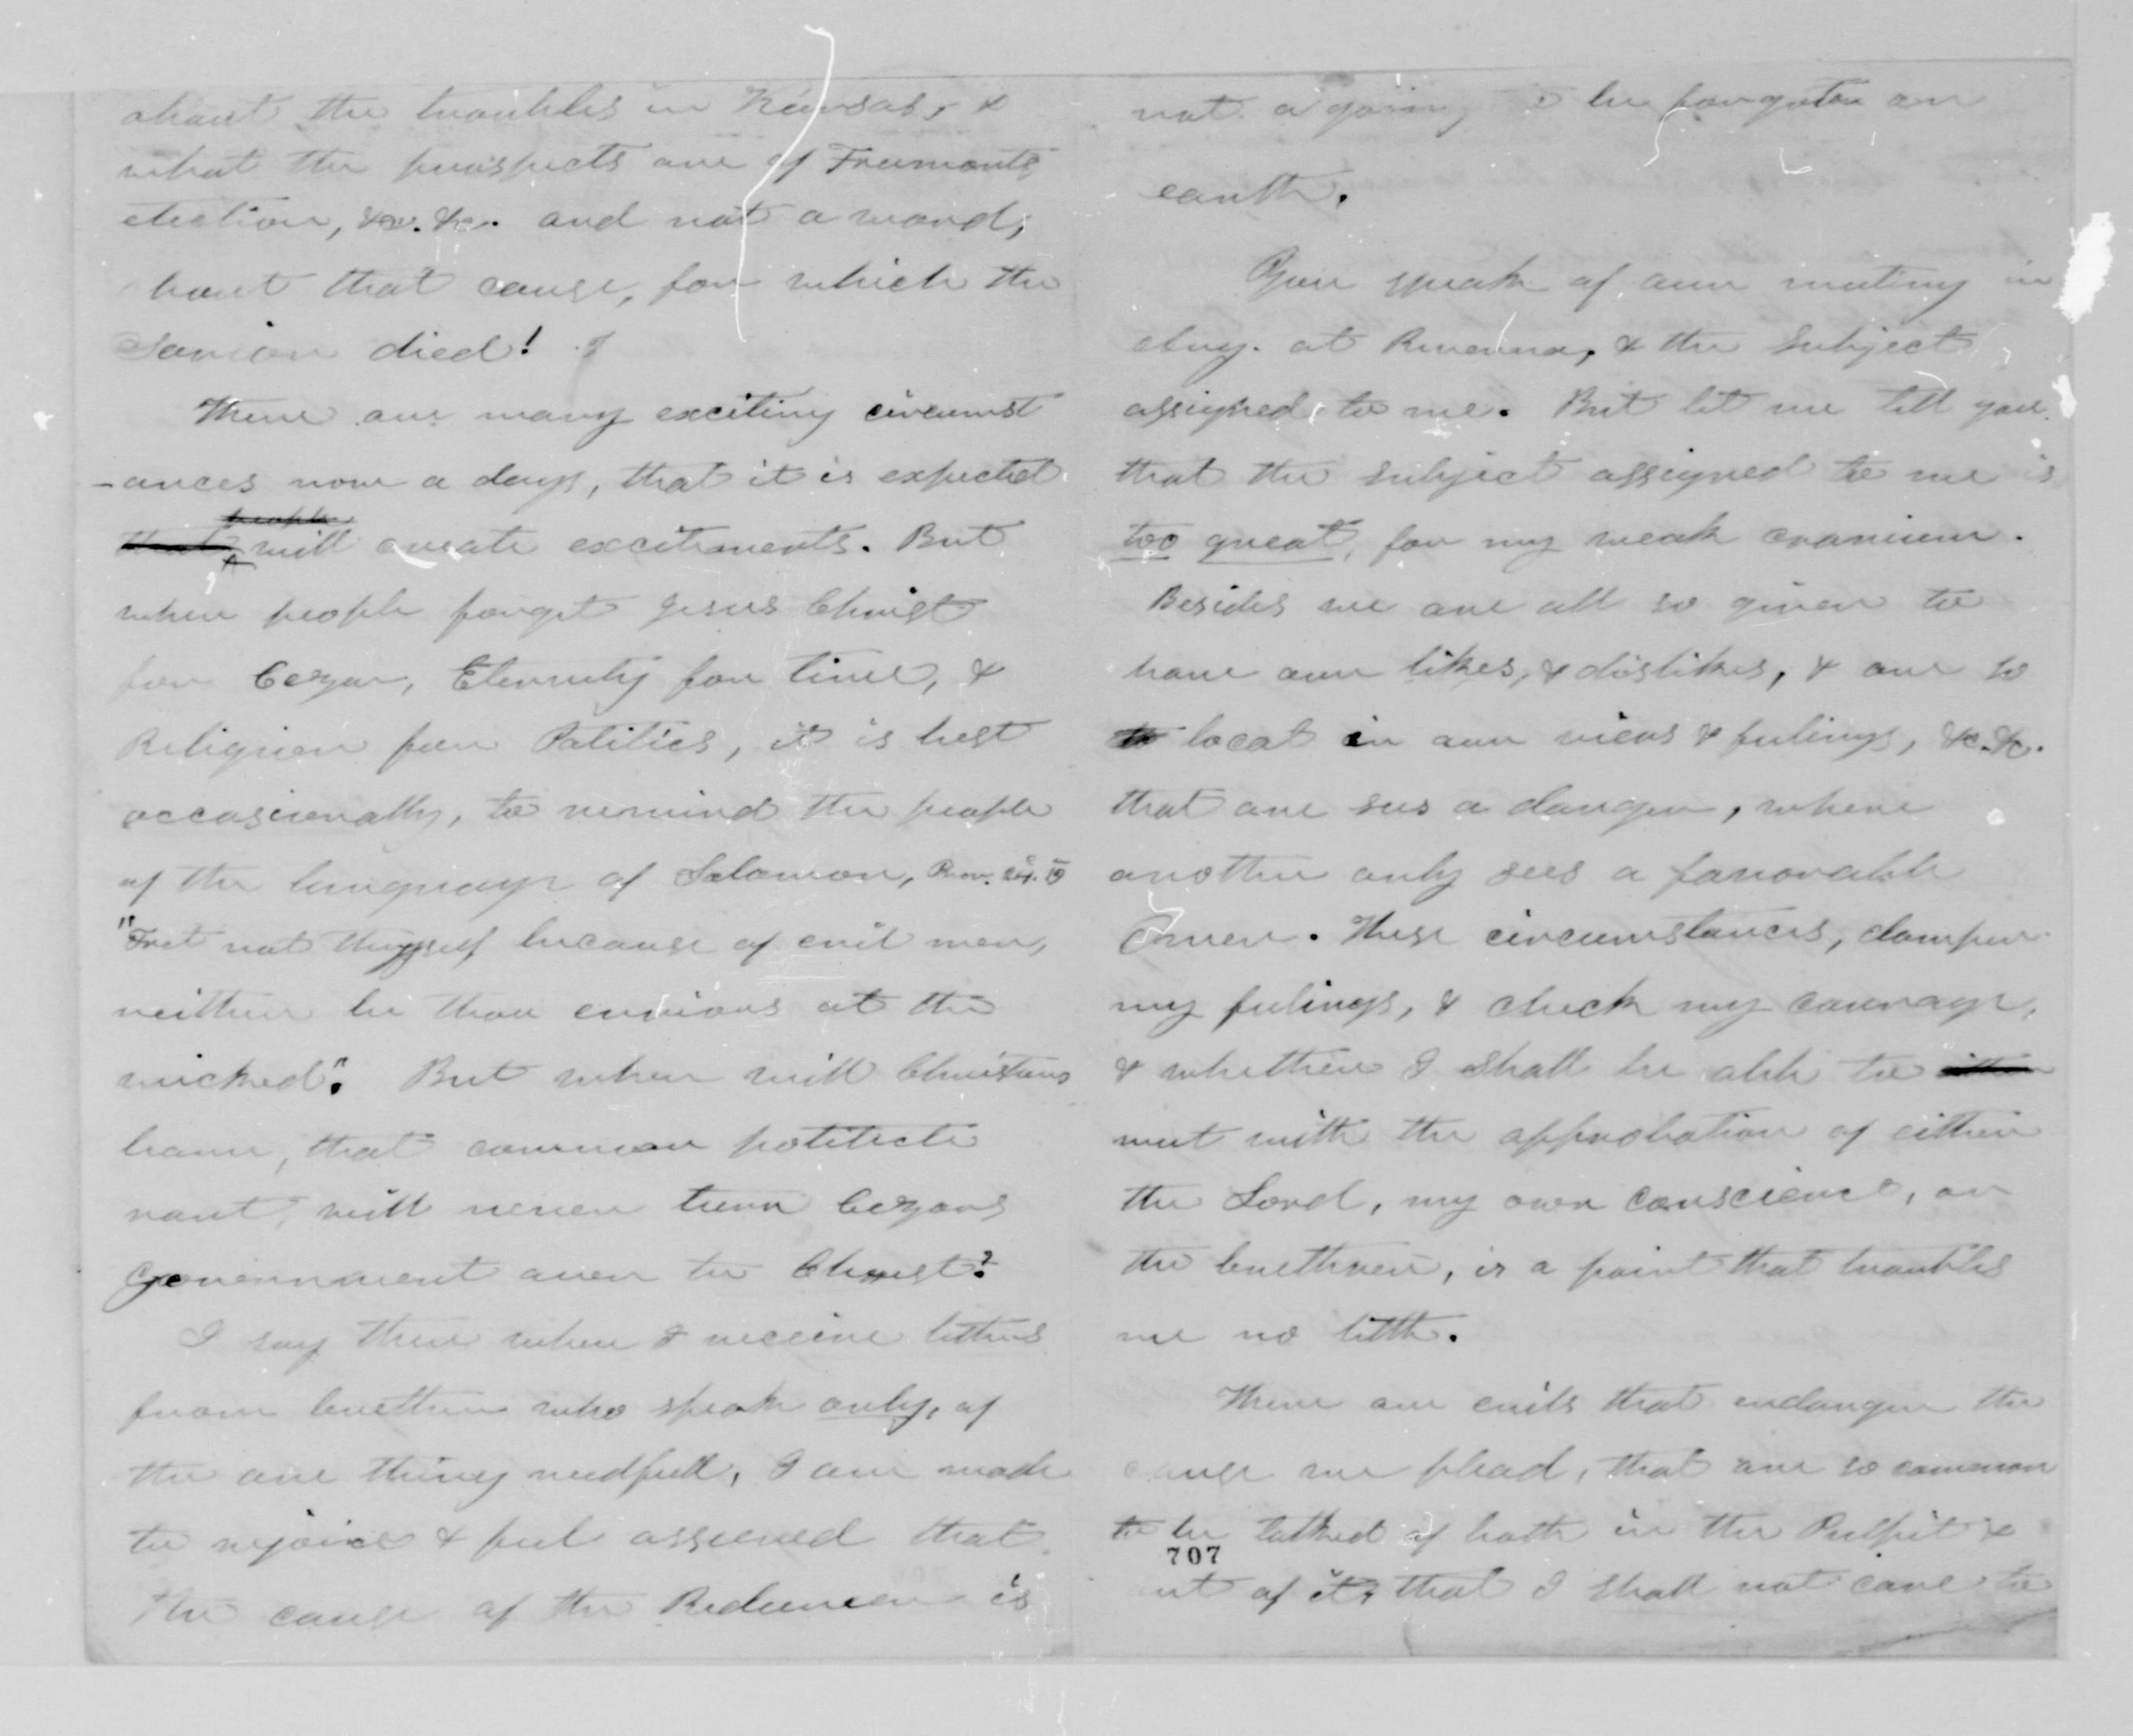 about the troubles in Kansas, &
what the prospects are of Freemonts
election, &c. &c. and not a word,
bout that cause, for which the
Savior died!
There are many exciting circumst
-ances now a days, that it is expected
people
that will create excitements. But
when people forget Jesus Christ
for Cezar, Eternity for time, &
Religion for Politics, it is best
occasionally, to remind the people
of the language of Solomon, Prov. 24. 19
"Fret not thyself because of evil men,
neither be thou envious at the
wicked". But when will Christians
learn, that common politicle
rant, will never turn Cezars
government over to Christ?
I say then when I receive letters
from brethren who speak only, of
the one thing needfull, I am made
to rejoice & feel assured that
the cause of the Redeemer is
not a going to be forgotten on
earth.
You speak of our meeting in
Aug. at Ravenna, & the Subject
assigned to me. But let me tell you
that the subject assigned to me is
too great, for my weak cranium.
Besides we are all so given to
have our likes, & dislikes, & are so
to local in our views & feelings, &c. &c.
that one sees a danger, where
another only sees a favorable
Omen. These circumstances, dampen
my feelings, & check my courage,
& whether I shall be able to either
meet with the approbation of either
the Lord, my own conscience, or
the brethren, is a point that troubles
me no little.
There are evils that endanger the
cause we plead, that are so common
to be talked of both in the Pulpit &
707
out of it, that I shall not care to